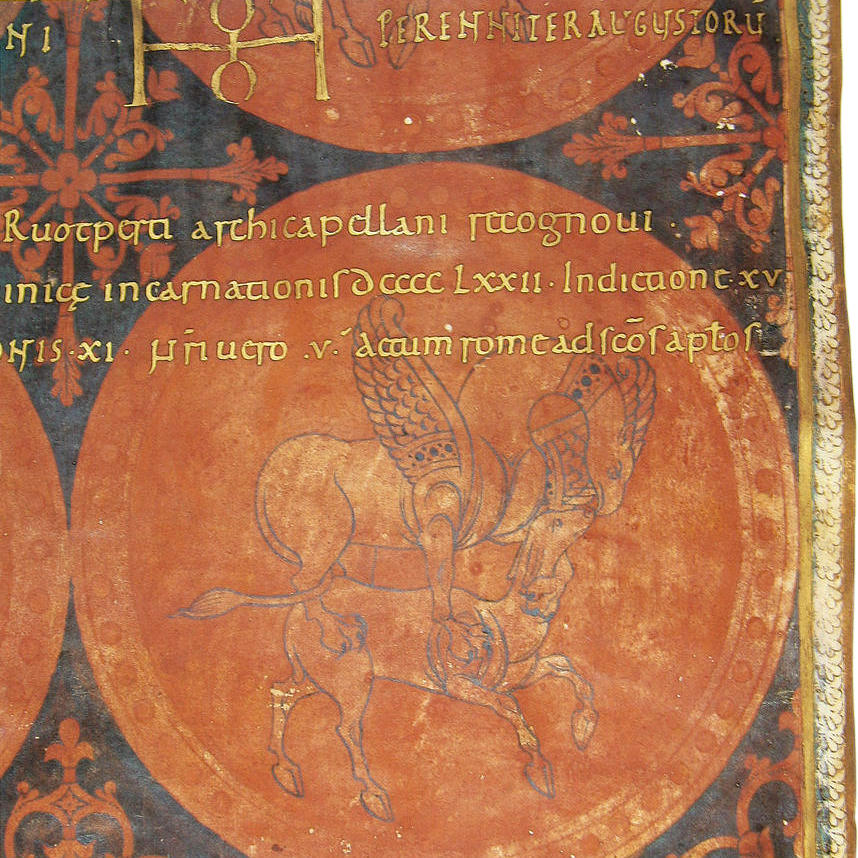 NI PERENNITER AUGUSTORU
Ruotperti archicapellani recognoui .
inicę incarnationis dcccc Lxxii · Indictione · xv
ONIS · XI · ñri uero .v. actum rome ad scōs aptos